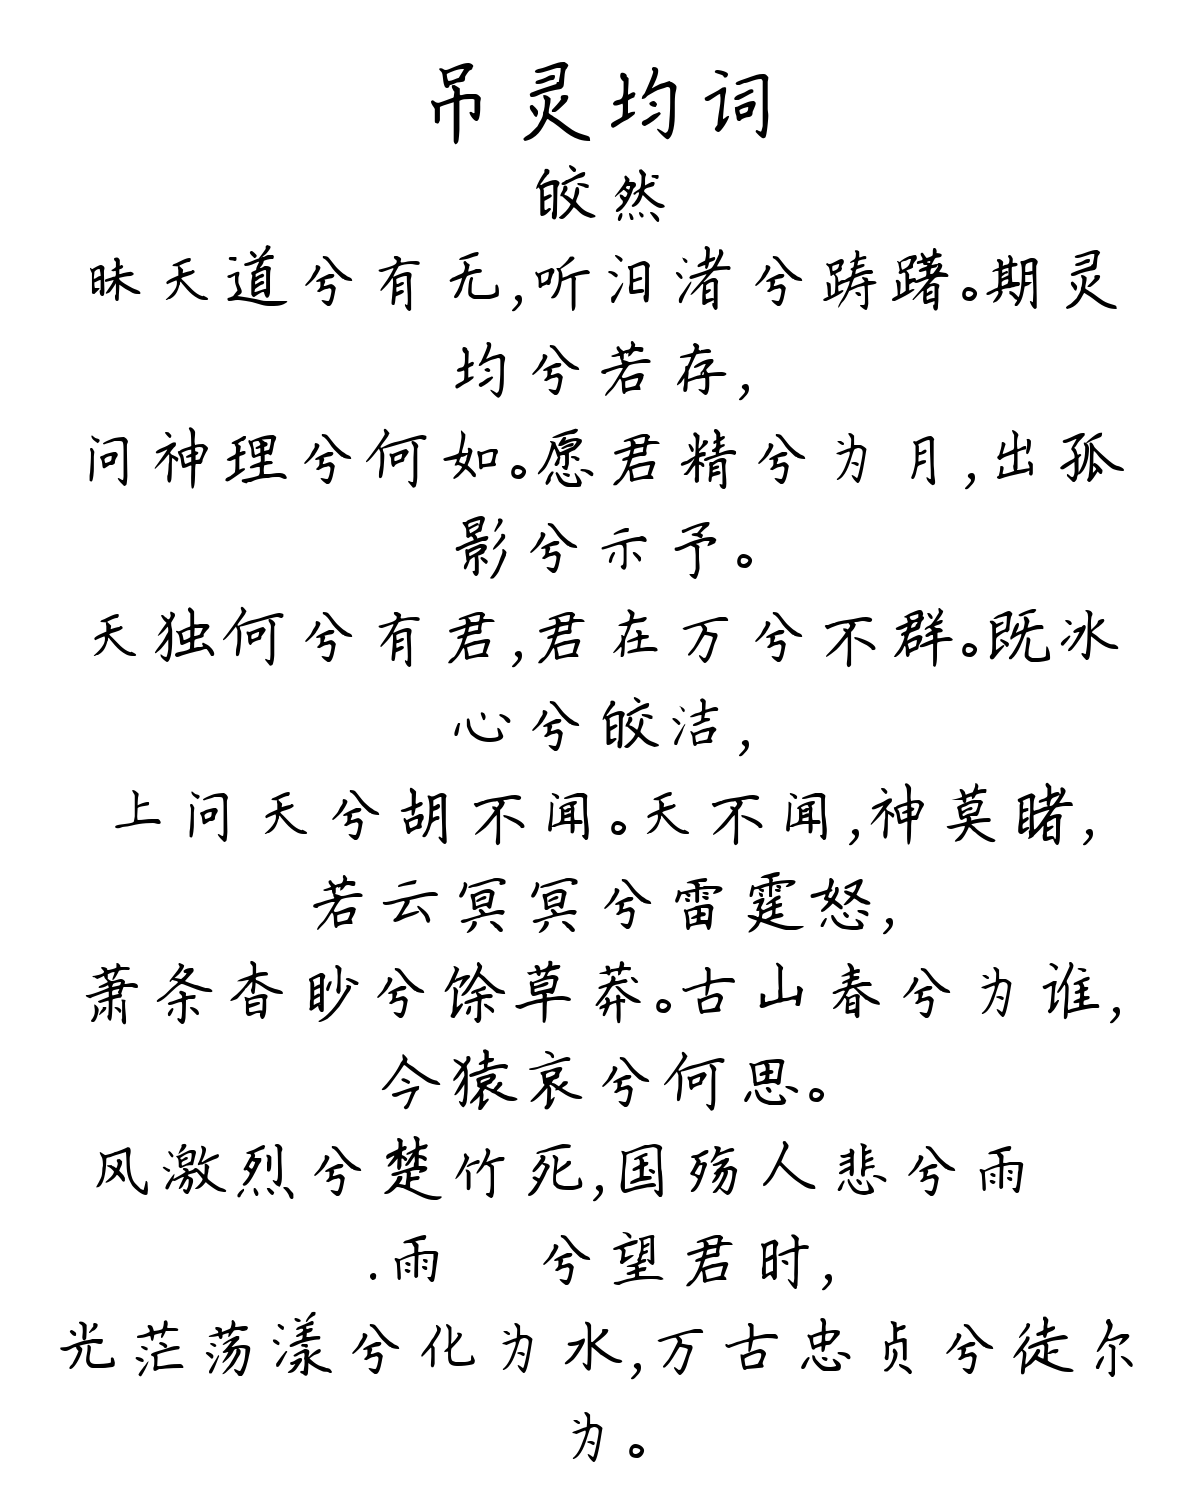 吊灵均词
皎然
昧天道兮有无,听汨渚兮踌躇。期灵
均兮若存,
问神理兮何如。愿君精兮为月,出孤
影兮示予。
天独何兮有君,君在万兮不群。既冰
心兮皎洁,
上问天兮胡不闻。天不闻,神莫睹,
若云冥冥兮雷霆怒,
萧条杳眇兮馀草莽。古山春兮为谁,
今猿哀兮何思。
风激烈兮楚竹死,国殇人悲兮雨
.雨 兮望君时,
光茫荡漾兮化为水,万古忠贞兮徒尔
为。